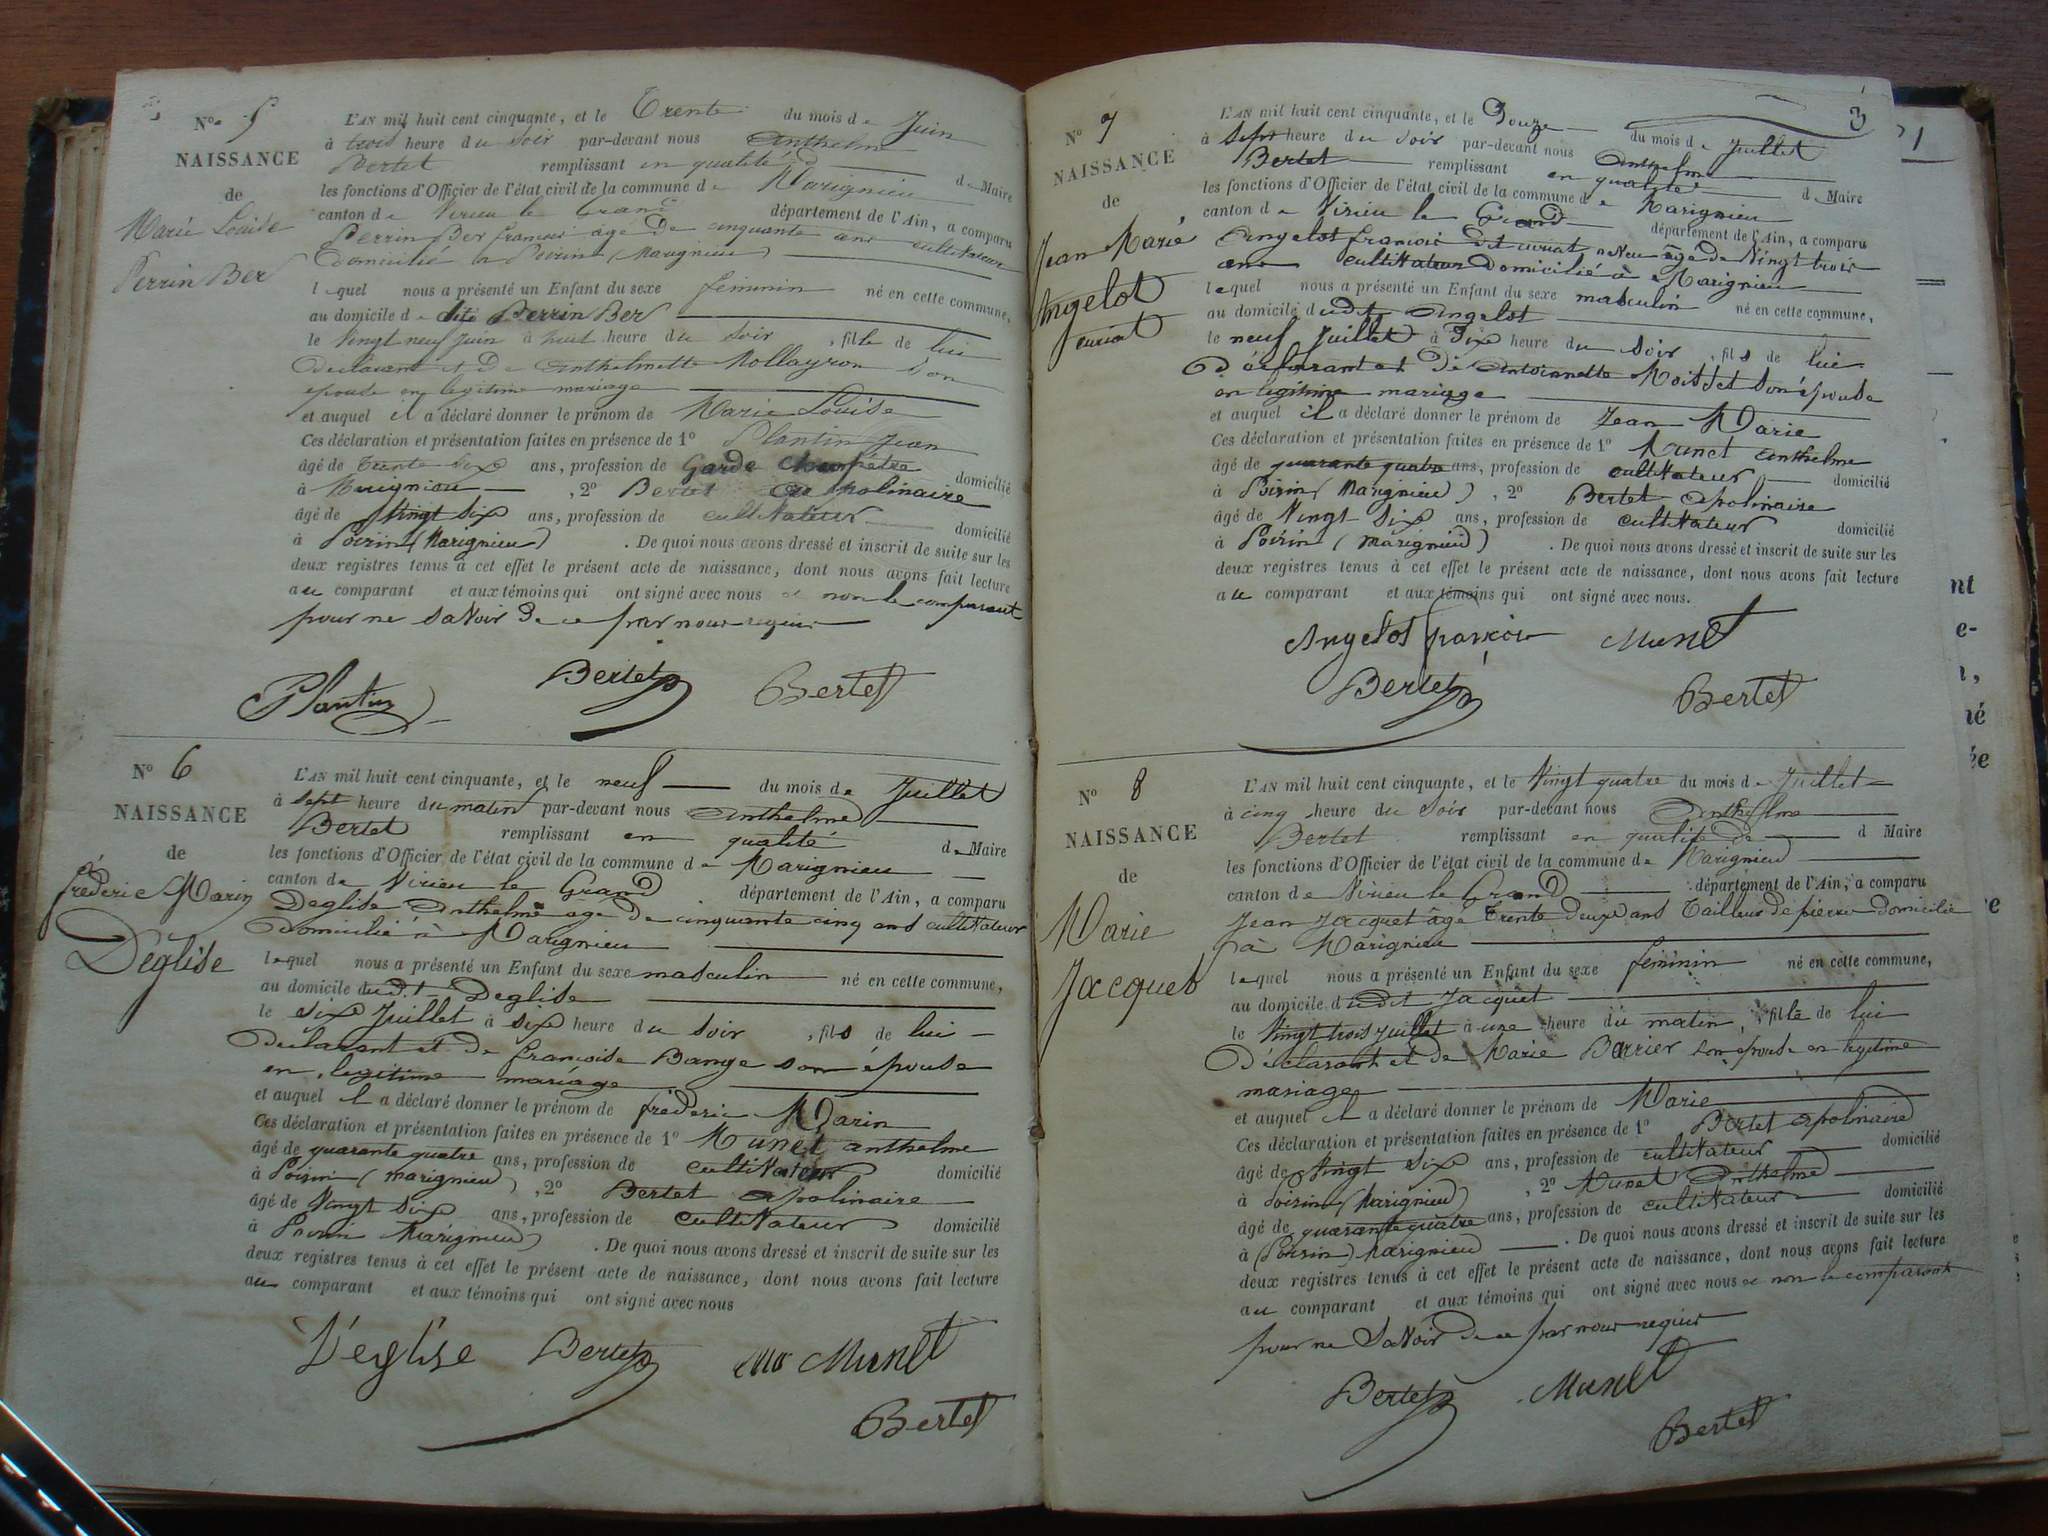 N° 5
NAISSANCE
de
Marie Louise
Perrin Ber
L'AN mil huit cent cinquante, et le Trente du mois de Juin
à trois heure du soir par-devant nous Anthelme
Bertet remplissant en qualité d de Maire
les fonctions d'Officier de l'état civil de la commune de Marignieu
canton de Virieu le Grand département de l'Ain, a comparu
Perrin Ber francois age de cinquante ans cultivateur
Domicilié a Poirin (Marignieu)
lequel nous a présenté un Enfant du sexe feminin né en cette commune,
au domicile de dit Perrin Ber
le Vingt neuf Juin à huit heure du soir , fille de lui
declarant et de anthelmette Mollayron son
epouse en legitime mariage
et auquel il a déclaré donner le prénom de Marie Louise
Ces déclaration et présentation faites en présence de 1° Plantin Jean
âgé de trente six ans, profession de Garde Champêtre domicilié
à Marignieu , 2° Bertet apolinaire
âgé de Vingt six ans, profession de cultivateur domicilié
à Poirin (Marignieu) . De quoi nous avons dressé et inscrit de suite sur les
deux registres tenus à cet effet le présent acte de naissance, dont nous avons fait lecture
au comparant et aux témoins qui ont signé avec nous et non le comparant
pour ne savoir de ce par nous requis
Plantin Bertet Bertet
N° 6
NAISSANCE
de
fréderic Marin
Déglise
L'AN mil huit cent cinquante, et le neuf du mois de Juillet
à sept heure du matin par-devant nous Anthelme
Bertet remplissant en qualité de Maire
les fonctions d'Officier de l'état civil de la commune de Marignieu
canton de Virieu le Grand département de l'Ain, a comparu
Deglise Anthelme age de cinquante cinq ans cultivateur
domicilié à Marignieu
lequel nous a présenté un Enfant du sexe masculin né en cette commune,
au domicile dudit Deglise
le six Juillet à six heure du soir , fils de lui
declarant et de francoise Bange son épouse
en legitime mariage
et auquel il a déclaré donner le prénom de fréderic Marin
Ces déclaration et présentation faites en présence de 1° Munet anthelme
âgé de quarante quatre ans, profession de cultivateur domicilié
à Poirin (marignieu) , 2° Bertet apolinaire
âgé de Vingt six ans, profession de cultivateur domicilié
à Poirin Marignieu) . De quoi nous avons dressé et inscrit de suite sur les
deux registres tenus à cet effet le présent acte de naissance, dont nous avons fait lecture
au comparant et aux témoins qui ont signé avec nous
Déglise Bertet Munet
Bertet
3
N° 7
NAISSANCE
de
Jean Marie
Angelot
curiat
L'AN mil huit cent cinquante, et le Douze du mois de Juillet
à sept heure du soir par-devant nous Anthelme
Bertet remplissant en qualité de Maire
les fonctions d'Officier de l'état civil de la commune de Marignieu
canton de Virieu le Grand département de l'Ain, a comparu
Angelot francois dit curiat neveu âge de Vingt trois
ans cultivateur domicilié à Marignieu
lequel nous a présenté un Enfant du sexe masculin né en cette commune,
au domicile dudit Angelot
le neuf Juillet à Dix heure du soir , fils de lui
Déclarant et de Antoinnette Moisset son épouse
en legitime mariage
et auquel il a déclaré donner le prénom de Jean Marie
Ces déclaration et présentation faites en présence de 1° Munet anthelme
âgé de quarante quatre ans, profession de cultivateur domicilié
à Poirin (Marignieu) , 2° Bertet apolinaire
âgé de Vingt six ans, profession de cultivateur domicilié
à Poirin (marignieu) . De quoi nous avons dressé et inscrit de suite sur les
deux registres tenus à cet effet le présent acte de naissance, dont nous avons fait lecture
au comparant et aux témoins qui ont signé avec nous.
Angelot francois Munet
Bertet Bertet
N° 8
NAISSANCE
de
Marie
Jacquet
L'AN mil huit cent cinquante, et le Vingt quatre du mois de Juillet
à cinq heure du soir par-devant nous Anthelme
Bertet remplissant en qualité de d Maire
les fonctions d'Officier de l'état civil de la commune de Marignieu
canton de Virieu le Grand département de l'Ain, a comparu
Jean Jacquet âge Trente deux ans Tailleur de pierre domicilié
à Marignieu
lequel nous a présenté un Enfant du sexe feminin né en cette commune,
au domicile dudit Jacquet
le Vingt trois juillet à une heure du matin , fille de lui
Déclarant et de Marie Barrier son epouse en legitime
mariage
et auquel il a déclaré donner le prénom de Marie
Ces déclaration et présentation faites en présence de 1° Bertet apolinaire
âgé de Vingt six ans, profession de cultivateur domicilié
à Poirin (Marignieu) , 2° Munet Anthelme
âgé de quarante quatre ans, profession de cultivateur domicilié
à (Poirin) Marignieu . De quoi nous avons dressé et inscrit de suite sur les
deux registres tenus à cet effet le présent acte de naissance, dont nous avons fait lecture
au comparant et aux témoins qui ont signé avec nous et non le comparant
pour ne savoir de ce par nous requis
Bertet Munet
Bertet